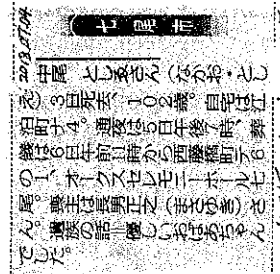 2013.27.04
七尾市
中尾 とし&#23376;さん（なかお・とし
え）3日死去、102歳。自宅は辻
町ナ4。通夜は5日午後7時、葬
儀は6日午前11時から西藤橋町テ6
の1、オークスセレモニーホール七
尾。喪主は長男正之（まさゆき）さ
ん。遺族の話 優しいおばあちゃん
でした。